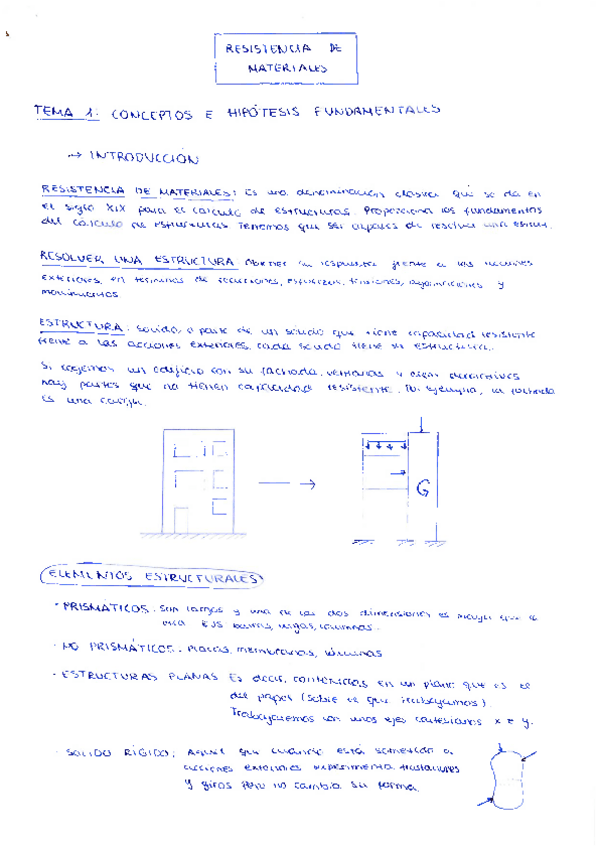 RESISTENCIA DE
MATERIALES
TEMA 1: CONCEPTOS E HIPÓTESIS FUNDAMENTALES
→ INTRODUCCIÓN
RESISTENCIA DE MATERIALES: Es una denominación clásica que se da en
el siglo XIX para el cálculo de estructuras. Proporciona los fundamentos
del cálculo de estructuras Tenemos que ser capaces de resolver una estruc.
RESOLVER UNA ESTRUCTURA obtener su respuesta frente a las acciones
exteriores, en términos de reacciones, esfuerzos, tensiones, deformaciones y
movimientos.
ESTRUCTURA: sólido, o parte de un sólido que tiene capacidad resistente
frente a las acciones exteriores, cada sólido tiene su estructura.
Si cogemos un edificio con su fachada, ventanas y
hay partes que no tienen capacidad resistente. Por ejemplo, la fachada
es una carga.
G
ELEMENTOS ESTRUCTURALES
· PRISMÁTICOS. Son largos y una de las dos dimensiones es mayor que la
otra EJS barras, vigas, columnas.
· NO PRISMÁTICOS. Placas, membranas, láminas
· ESTRUCTURAS PLANAS Es decir, contenidas en un plano que es el
del papel (sobre el que trabajamos).
Trabajaremos con unos ejes cartesianos x e y.
· SOLIDO RÍGIDO: Aquel que cuando está sometido a
acciones exteriores experimenta traslaciones
y giros pero no cambia su forma.